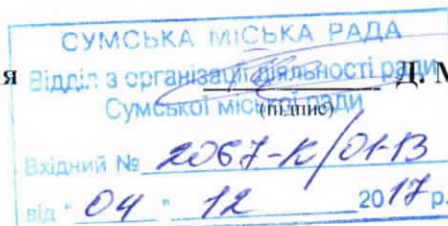 СУМСЬКА МІСЬКА РАДА
я Відділ з організації діяльності ради Д. М
Сумської міської ради
(підпис)
Вхідний № 2067-К/01-13
від " 04 " 12 2017 р.